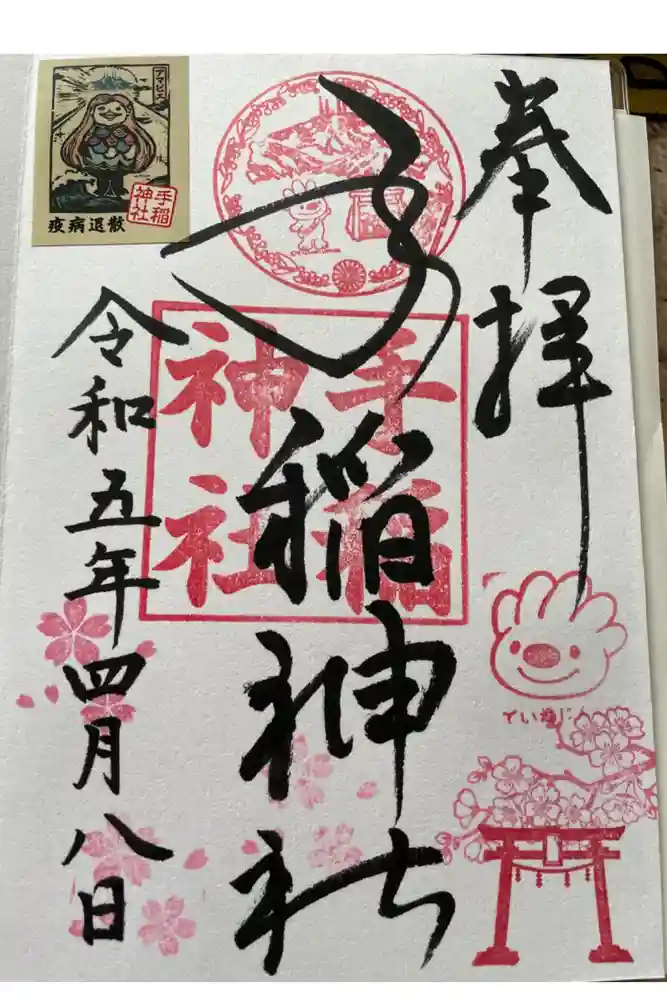 奉拝
手稲神社
手稲
神社
令和五年四月八日
アマビエ
手稲
神社
疫病退散
ていぬじん